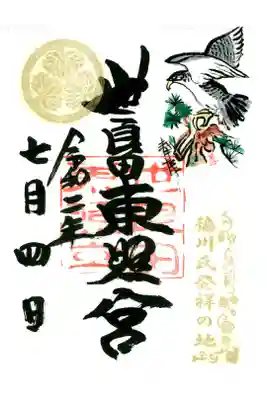 徳川氏発祥の地
世良田東照宮
令和二年
七月四日